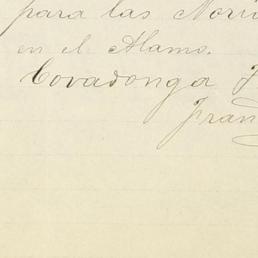 para las Nori
en el Alamo.
Covadonga
Fran